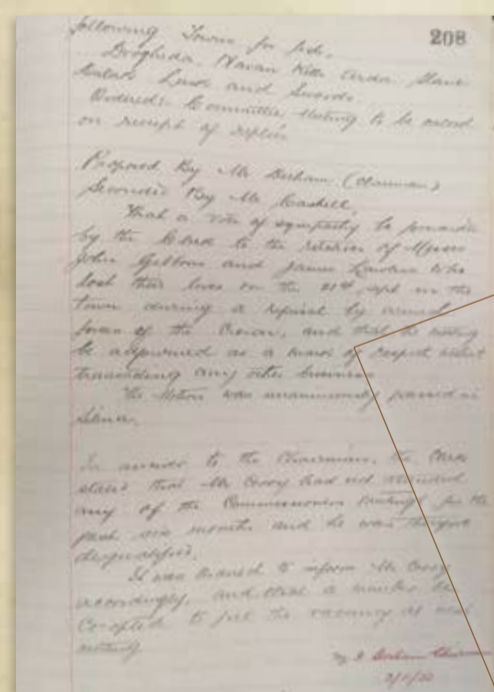 208
following Towns for
Drogheda, Navan Kells Slane
Lusk and Swords
Ordered: Committee Meeting to be
on receipt of replies
Proposed By Mr Derham (Chairman)
Seconded By Mr
That a vote of sympathy be
by the to the relatives of Messrs
John Gibbons and James Lawless who
lost their lives on the 21st Sept in the
town during a reprisal by armed
forces of the Crown, and that the meeting
be adjourned as a mark of respect without
transacting any other business
The Motion was unanimously passed in
silence.
In answer to the Chairman, the Clerk
stated that Mr had not attended
any of the Commissioners meetings for the
past six months and he was therefore
disqualified.
It was Ordered to inform Mr
accordingly, and that a member be
Co-opted to fill the vacancy at next
meeting
Derham Chairman